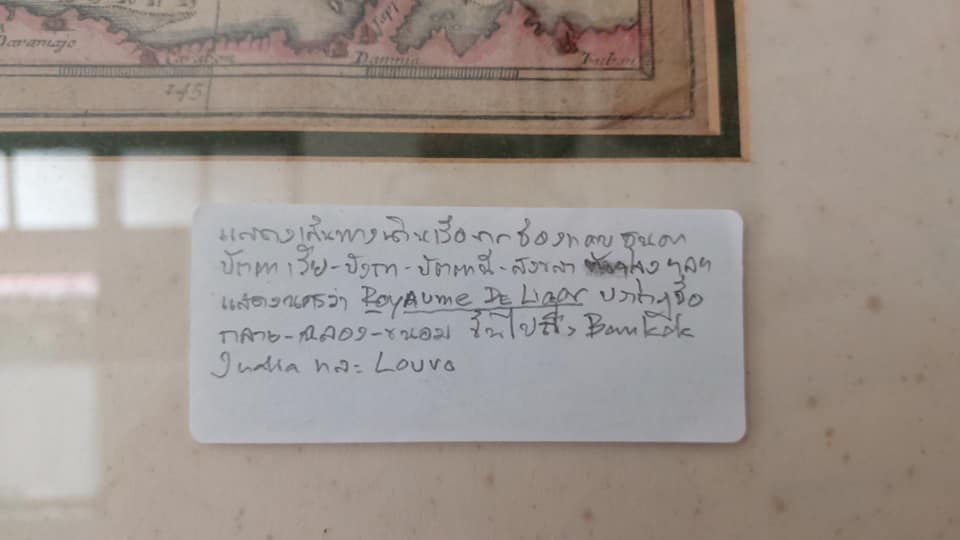 Daramajo
Taraban
Japi
Damnia
Tuban
145
แสดงเส้นทางเดินเรือจากช่องแคบซุนดา
ปัตตาเวีย-บังกา-ปัตตานี-สงขลา
แสดงนครว่า ROYAUME DE Ligor ปรากฏชื่อ
กลาย-ฉลอง-ขนอม ขึ้นไปถึง Bankok
Judia และ Louvo